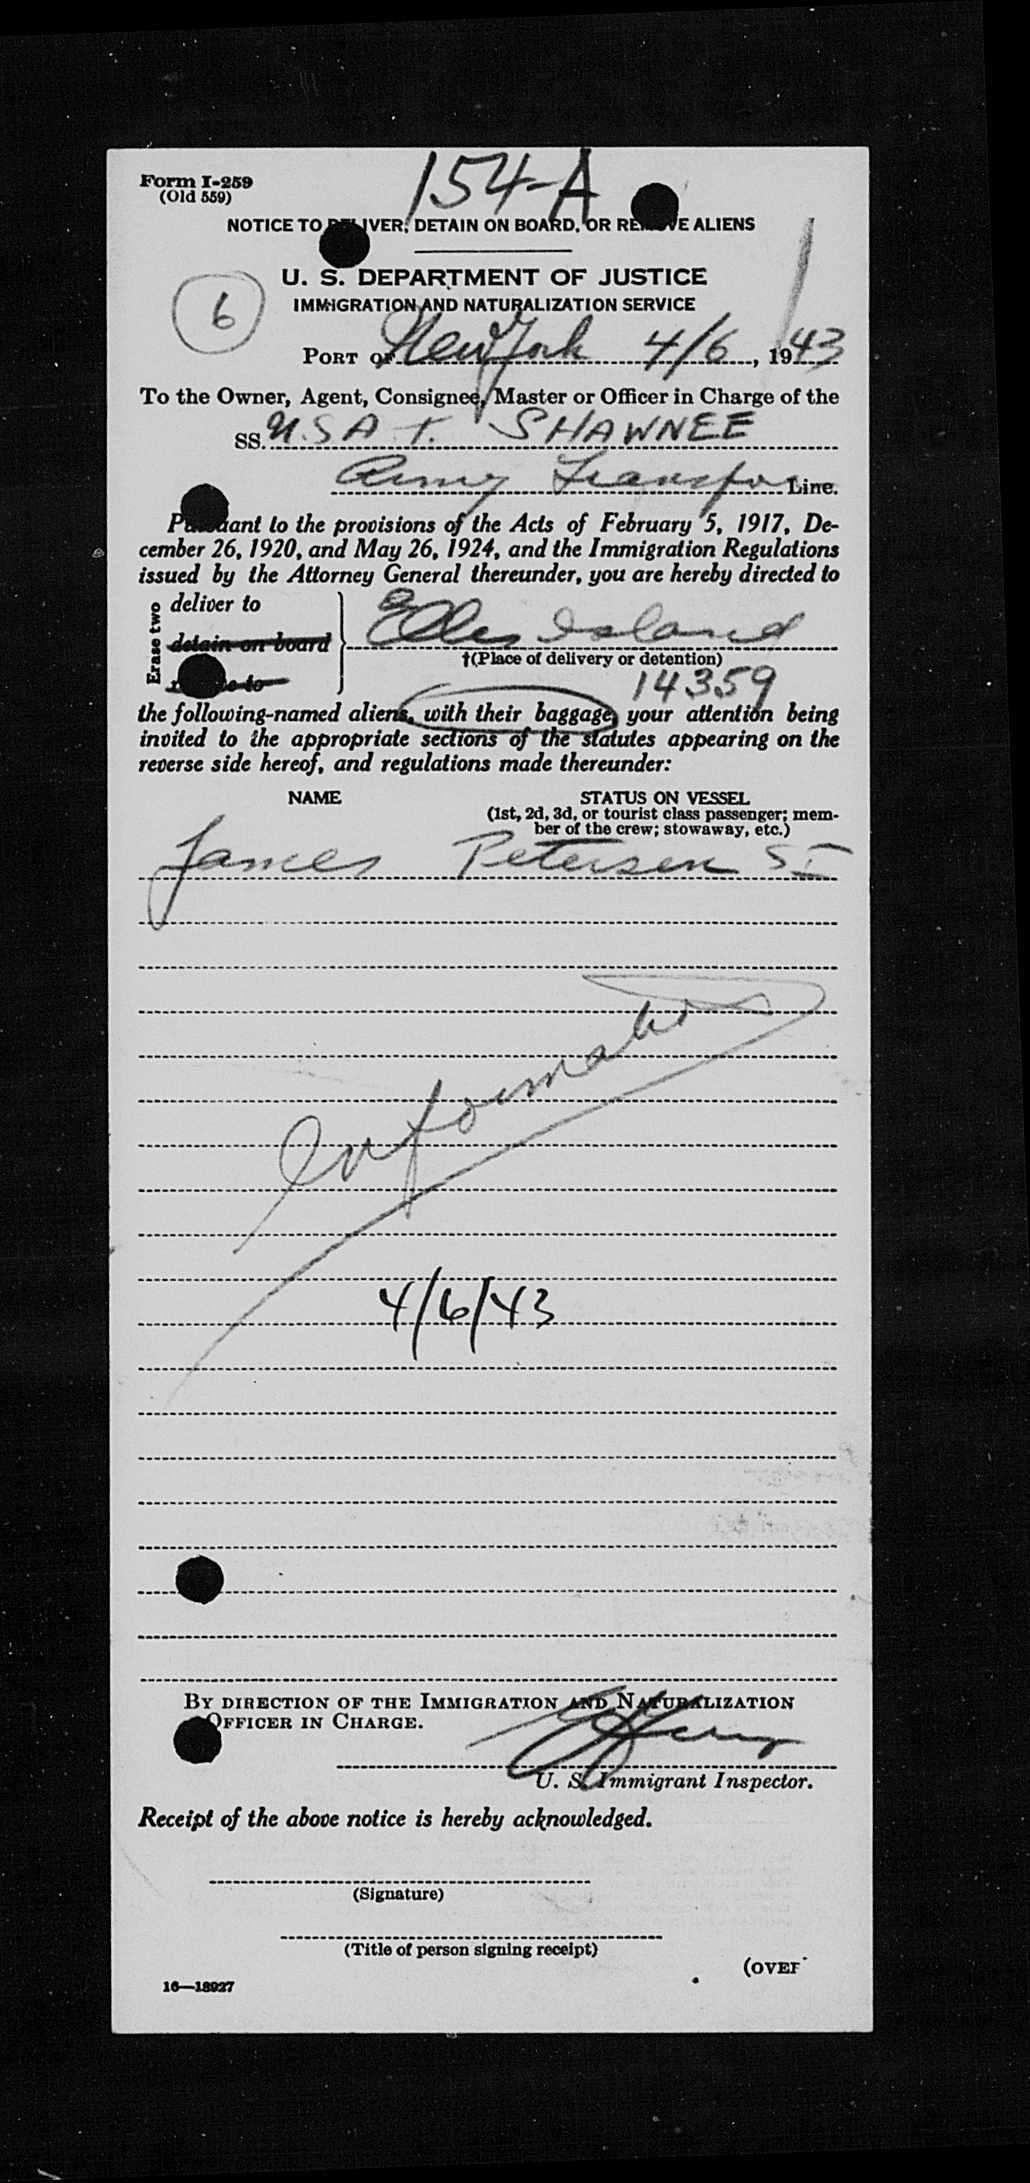 Form I-259
(Old 559)
154-A
NOTICE TO DELIVER, DETAIN ON BOARD, OR REMOVE ALIENS
U. S. DEPARTMENT OF JUSTICE
IMMIGRATION AND NATURALIZATION SERVICE
6
PORT OF New York 4/6, 1943
To the Owner, Agent, Consignee, Master or Officer in Charge of the
SS. U.S.A.T. SHAWNEE
Army Transpo Line.
Pursuant to the provisions of the Acts of February 5, 1917, De-
cember 26, 1920, and May 26, 1924, and the Immigration Regulations
issued by the Attorney General thereunder, you are hereby directed to
Erase two
deliver to
detain on board
remove to
Ellis Island
†(Place of delivery or detention)
14359
the following-named aliens, with their baggage, your attention being
invited to the appropriate sections of the statutes appearing on the
reverse side hereof, and regulations made thereunder:
NAME STATUS ON VESSEL
(1st, 2d, 3d, or tourist class passenger; mem-
ber of the crew; stowaway, etc.)
James Petersen SI
Information
4/6/43
BY DIRECTION OF THE IMMIGRATION AND NATURALIZATION
OFFICER IN CHARGE.
U. S. Immigrant Inspector.
Receipt of the above notice is hereby acknowledged.
(Signature)
(Title of person signing receipt)
(OVER
16—18927